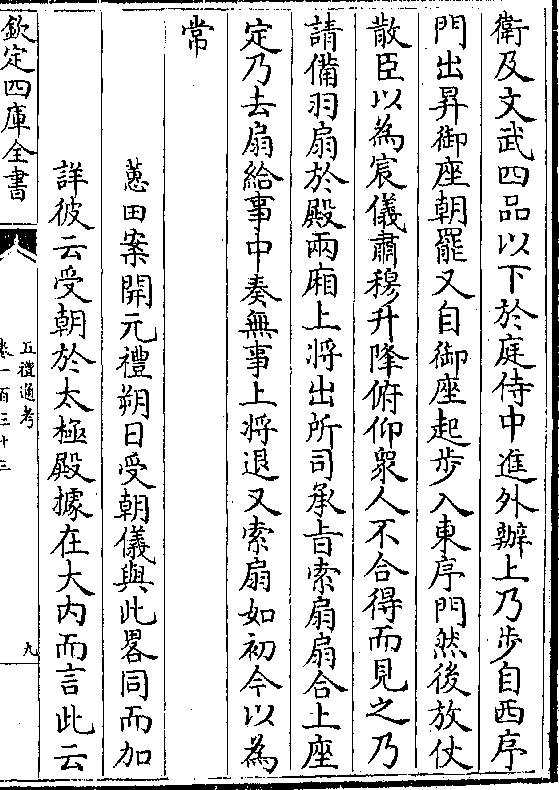 衛及文武四品以下於庭侍中進外辦上乃步自西序
門出昇御座朝罷又自御座起步入東序門然後放仗
散臣以為宸儀肅穆升降俯仰衆人不合得而見之乃
請備羽扇於殿兩廂上將出所司承旨索扇扇合上座
定乃去扇給事中奏無事上將退又索扇如初今以為
常
蕙田案開元禮朔日受朝儀與此畧同而加
詳彼云受朝於太極殿據在大内而言此云
欽定四庫全書
五禮通考
卷一百三十三
九